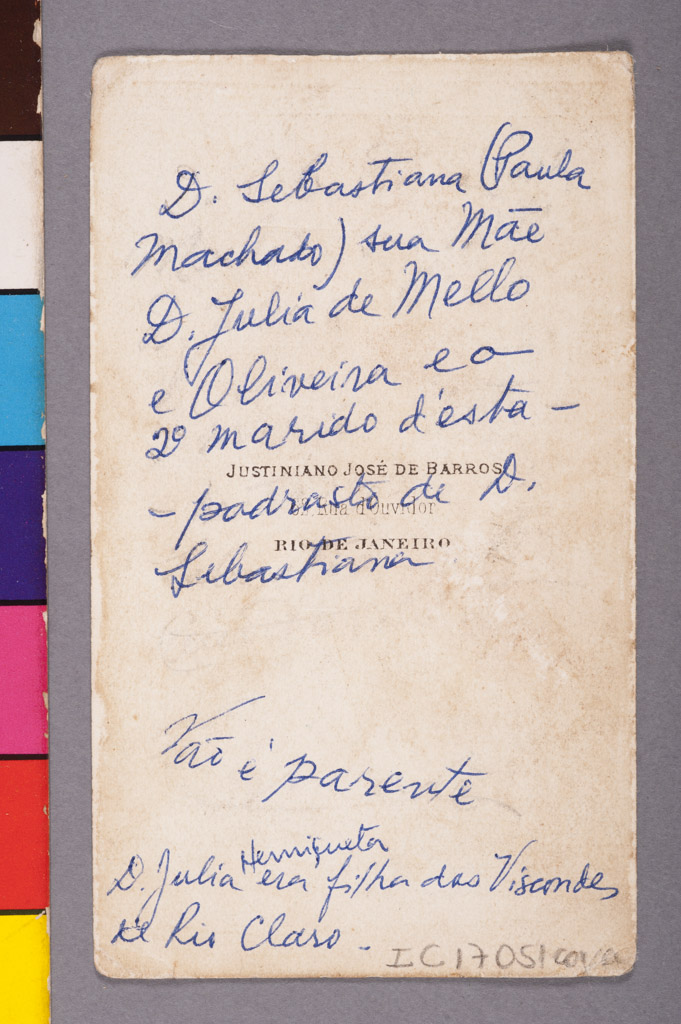 D. Sebastiana (Paula
Machado) sua Mãe
D. Julia de Mello
e Oliveira e o
2º marido d'esta -
JUSTINIANO JOSÉ DE BARROS
- padrasto de D.
Rua d'Ouvidor
RIO DE JANEIRO
Sebastiana
Não é parente
Henriqueta
D. Julia era filha dos Viscondes
de Rio Claro -